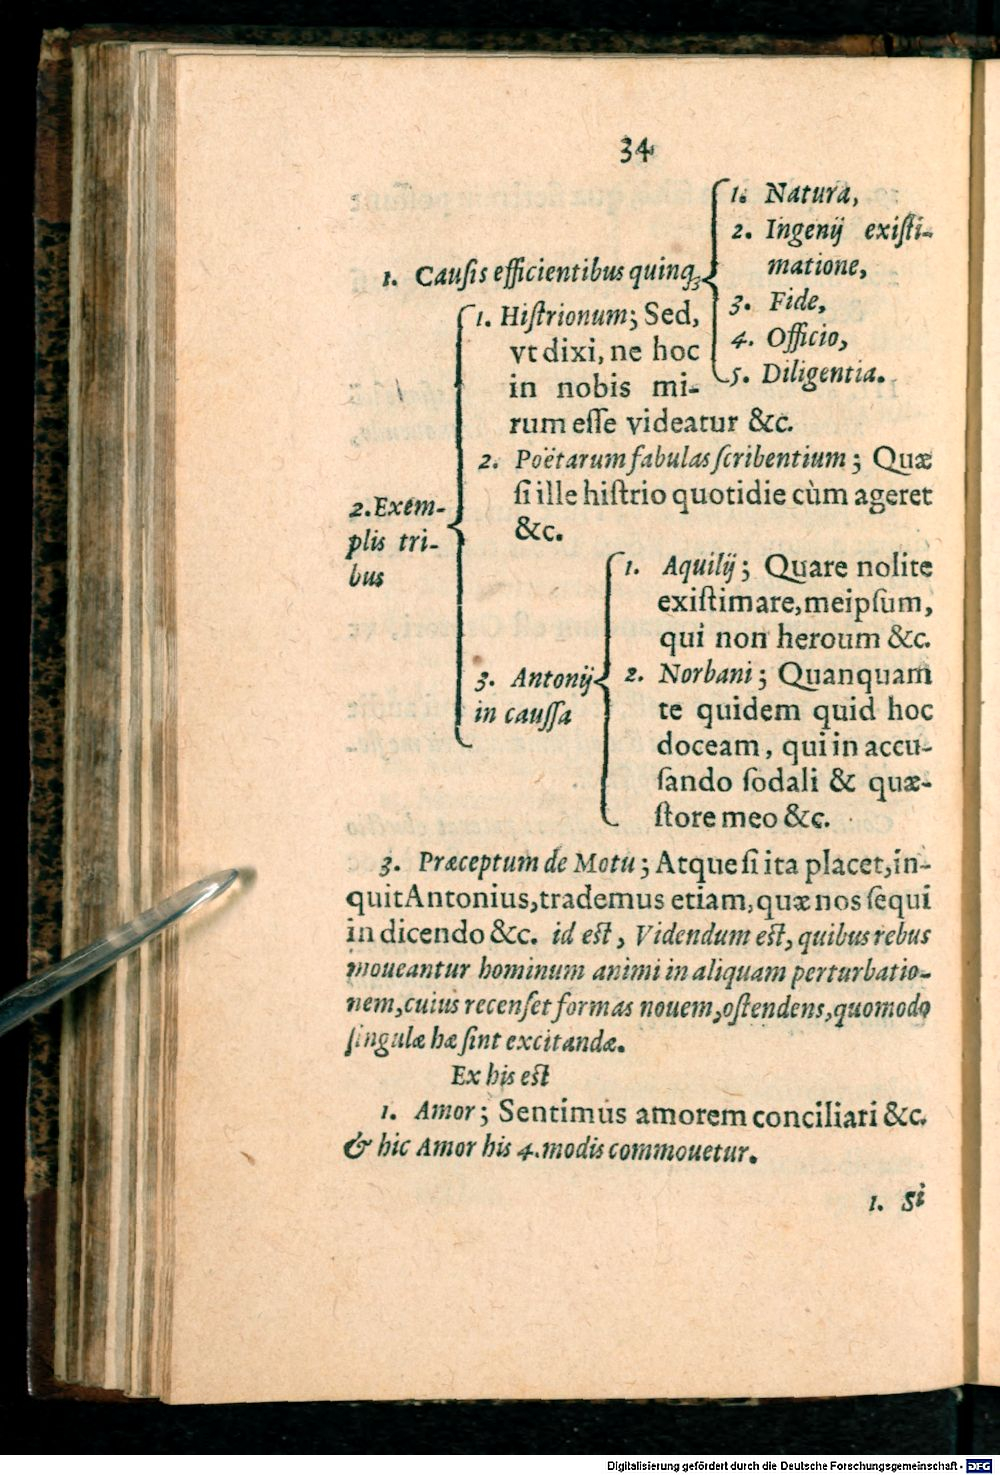 34
1. Causis efficientibus quinq₃
1. Natura,
2. Ingenij existi-
matione,
3. Fide,
4. Officio,
5. Diligentia.
2. Exem-
plis tri-
bus
1. Histrionum; Sed,
vt dixi, ne hoc
in nobis mi-
rum esse videatur &c.
2. Poëtarum fabulas scribentium; Quæ
si ille histrio quotidie cùm ageret
&c.
3. Antonij
in caussa
1. Aquilij; Quare nolite
existimare, meipsum,
qui non heroum &c.
2. Norbani; Quanquam
te quidem quid hoc
doceam, qui in accu-
sando sodali & quæ-
store meo &c.
3. Præceptum de Motu; Atque si ita placet, in-
quit Antonius, trademus etiam, quæ nos sequi
in dicendo &c. id est, Videndum est, quibus rebus
moueantur hominum animi in aliquam perturbatio-
nem, cuius recenset formas nouem, ostendens, quomodo
singulæ hæ sint excitandæ.
Ex his est
1. Amor; Sentimus amorem conciliari &c.
& hic Amor his 4. modis commouetur.
1. Si
Digitalisierung gefördert durch die Deutsche Forschungsgemeinschaft - DFG